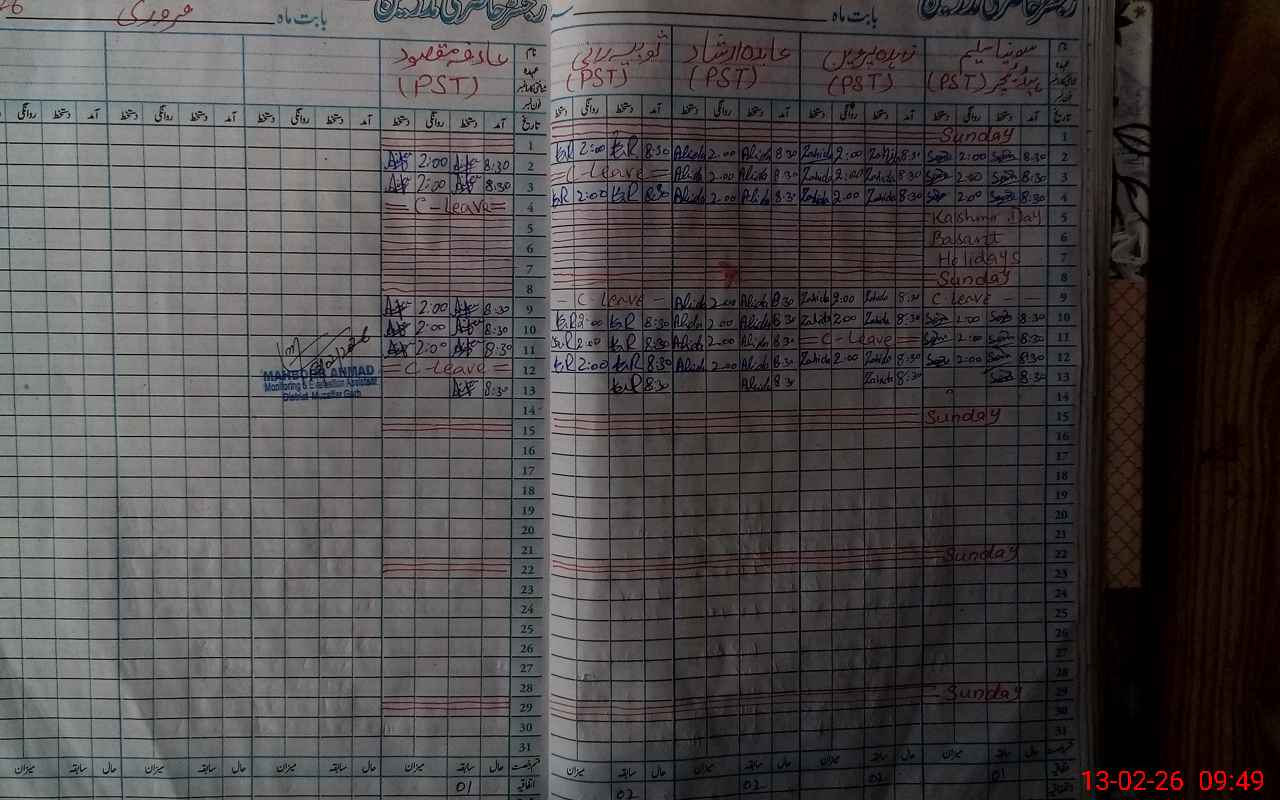 رجسٹر حاضری مدرسین بابت ماہ
رجسٹر حاضری مدرسین بابت ماہ فروری
نام سونیا سلیم زاہدہ پروین عابدہ ارشاد ثوبیہ رانی
عہدہ (PST) (PST) (PST) (PST)
نام عارفہ مقصود
عہدہ (PST)
تاریخ آمد دستخط روانگی دستخط آمد دستخط روانگی دستخط آمد دستخط روانگی دستخط آمد دستخط روانگی دستخط
تاریخ آمد دستخط روانگی دستخط آمد دستخط روانگی دستخط آمد دستخط روانگی دستخط آمد دستخط روانگی
Sunday 1
2:00 8:30 Abida 2:00 Abida 8:30 Zahida 2:00 Zahida 8:30 2:00 8:30 2
= C-Leave = Abida 2:00 Abida 8:30 Zahida 2:00 Zahida 8:30 2:00 8:30 3
2:00 8:30 Abida 2:00 Abida 8:30 Zahida 2:00 Zahida 8:30 2:00 8:30 4
Kashmir Day 5
Basant 6
Holidays 7
Sunday 8
- C-Leave - Abida 2:00 Abida 8:30 Zahida 2:00 Zahida 8:30 C-Leave - - 9
2:00 8:30 Abida 2:00 Abida 8:30 Zahida 2:00 Zahida 8:30 2:00 8:30 10
2:00 8:30 Abida 2:00 Abida 8:30 = C-Leave = 2:00 8:30 11
2:00 8:30 Abida 2:00 Abida 8:30 Zahida 2:00 Zahida 8:30 2:00 8:30 12
8:30 Abida 8:30 Zahida 8:30 8:30 13
14
Sunday 15
16
17
18
19
20
21
Sunday 22
23
24
25
26
27
28
Sunday 29
30
31
حال سابقہ میزان حال سابقہ میزان حال سابقہ میزان حال سابقہ میزان
اتفاقیہ 01 02 02 02
1
2:00 8:30 2
2:00 8:30 3
= C-Leave = 4
5
6
7
8
2:00 8:30 9
2:00 8:30 10
2:00 8:30 11
= C-Leave = 12
8:30 13
14
15
16
17
18
19
20
21
22
23
24
25
26
27
28
29
30
31
حال سابقہ میزان حال سابقہ میزان حال سابقہ میزان حال سابقہ میزان
اتفاقیہ 01
Monitoring & Evaluation Assistant
District Muzaffar Garh
13-02-26 09:49